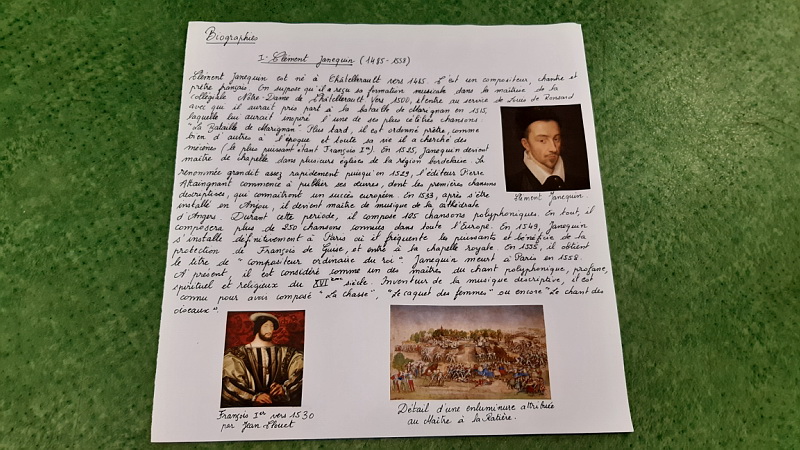 Biographies
I- Clément Janequin (1485-1558)
Clément Janequin est né à Châtellerault vers 1485. C'est un compositeur, chantre et
prêtre français. On suppose qu'il a reçu sa formation musicale dans la maîtrise de la
collégiale Nôtre-Dame de Châtellerault. Vers 1500, il entre au service de Louis de Ronsard
avec qui il aurait pris part à la bataille de Marignan en 1515,
laquelle lui aurait inspiré l'une de ses plus célèbres chansons
"La Bataille de Marignan". Plus tard, il est ordonné prêtre, comme
bien d'autres à l'époque et toute sa vie il a cherché des
mécènes (le plus puissant étant François Ier). En 1525, Janequin devient
maître de chapelle dans plusieurs églises de la région bordelaise. Sa
renommée grandit assez rapidement puisqu'en 1529, l'éditeur Pierre
Attaingnant commence à publier ses œuvres, dont les premières chansons
descriptives, qui connaîtront un succès européen. En 1533, après s'être
installé en Anjou, il devient maître de musique de la cathédrale
d'Angers. Durant cette période, il compose 125 chansons polyphoniques. En tout, il
composera plus de 250 chansons connues dans toute l'Europe. En 1549, Janequin
s'installe définitivement à Paris où il fréquente les puissants et bénéficie de la
protection de François de Guise, et entre à la chapelle royale. En 1555, il obtient
le titre de "compositeur ordinaire du roi". Janequin meurt à Paris en 1558.
A' présent, il est considéré comme un des maîtres du chant polyphonique, profane,
spirituel et religieux du XVIème siècle. Inventeur de la musique descriptive, il est
connu pour avoir composé "La chasse", "Le caquet des femmes" ou encore "Le chant des
oiseaux".
Clément Janequin
François Ier vers 1530
par Jean Clouet
Détail d'une enluminure attribuée
au Maître à la Ratière.